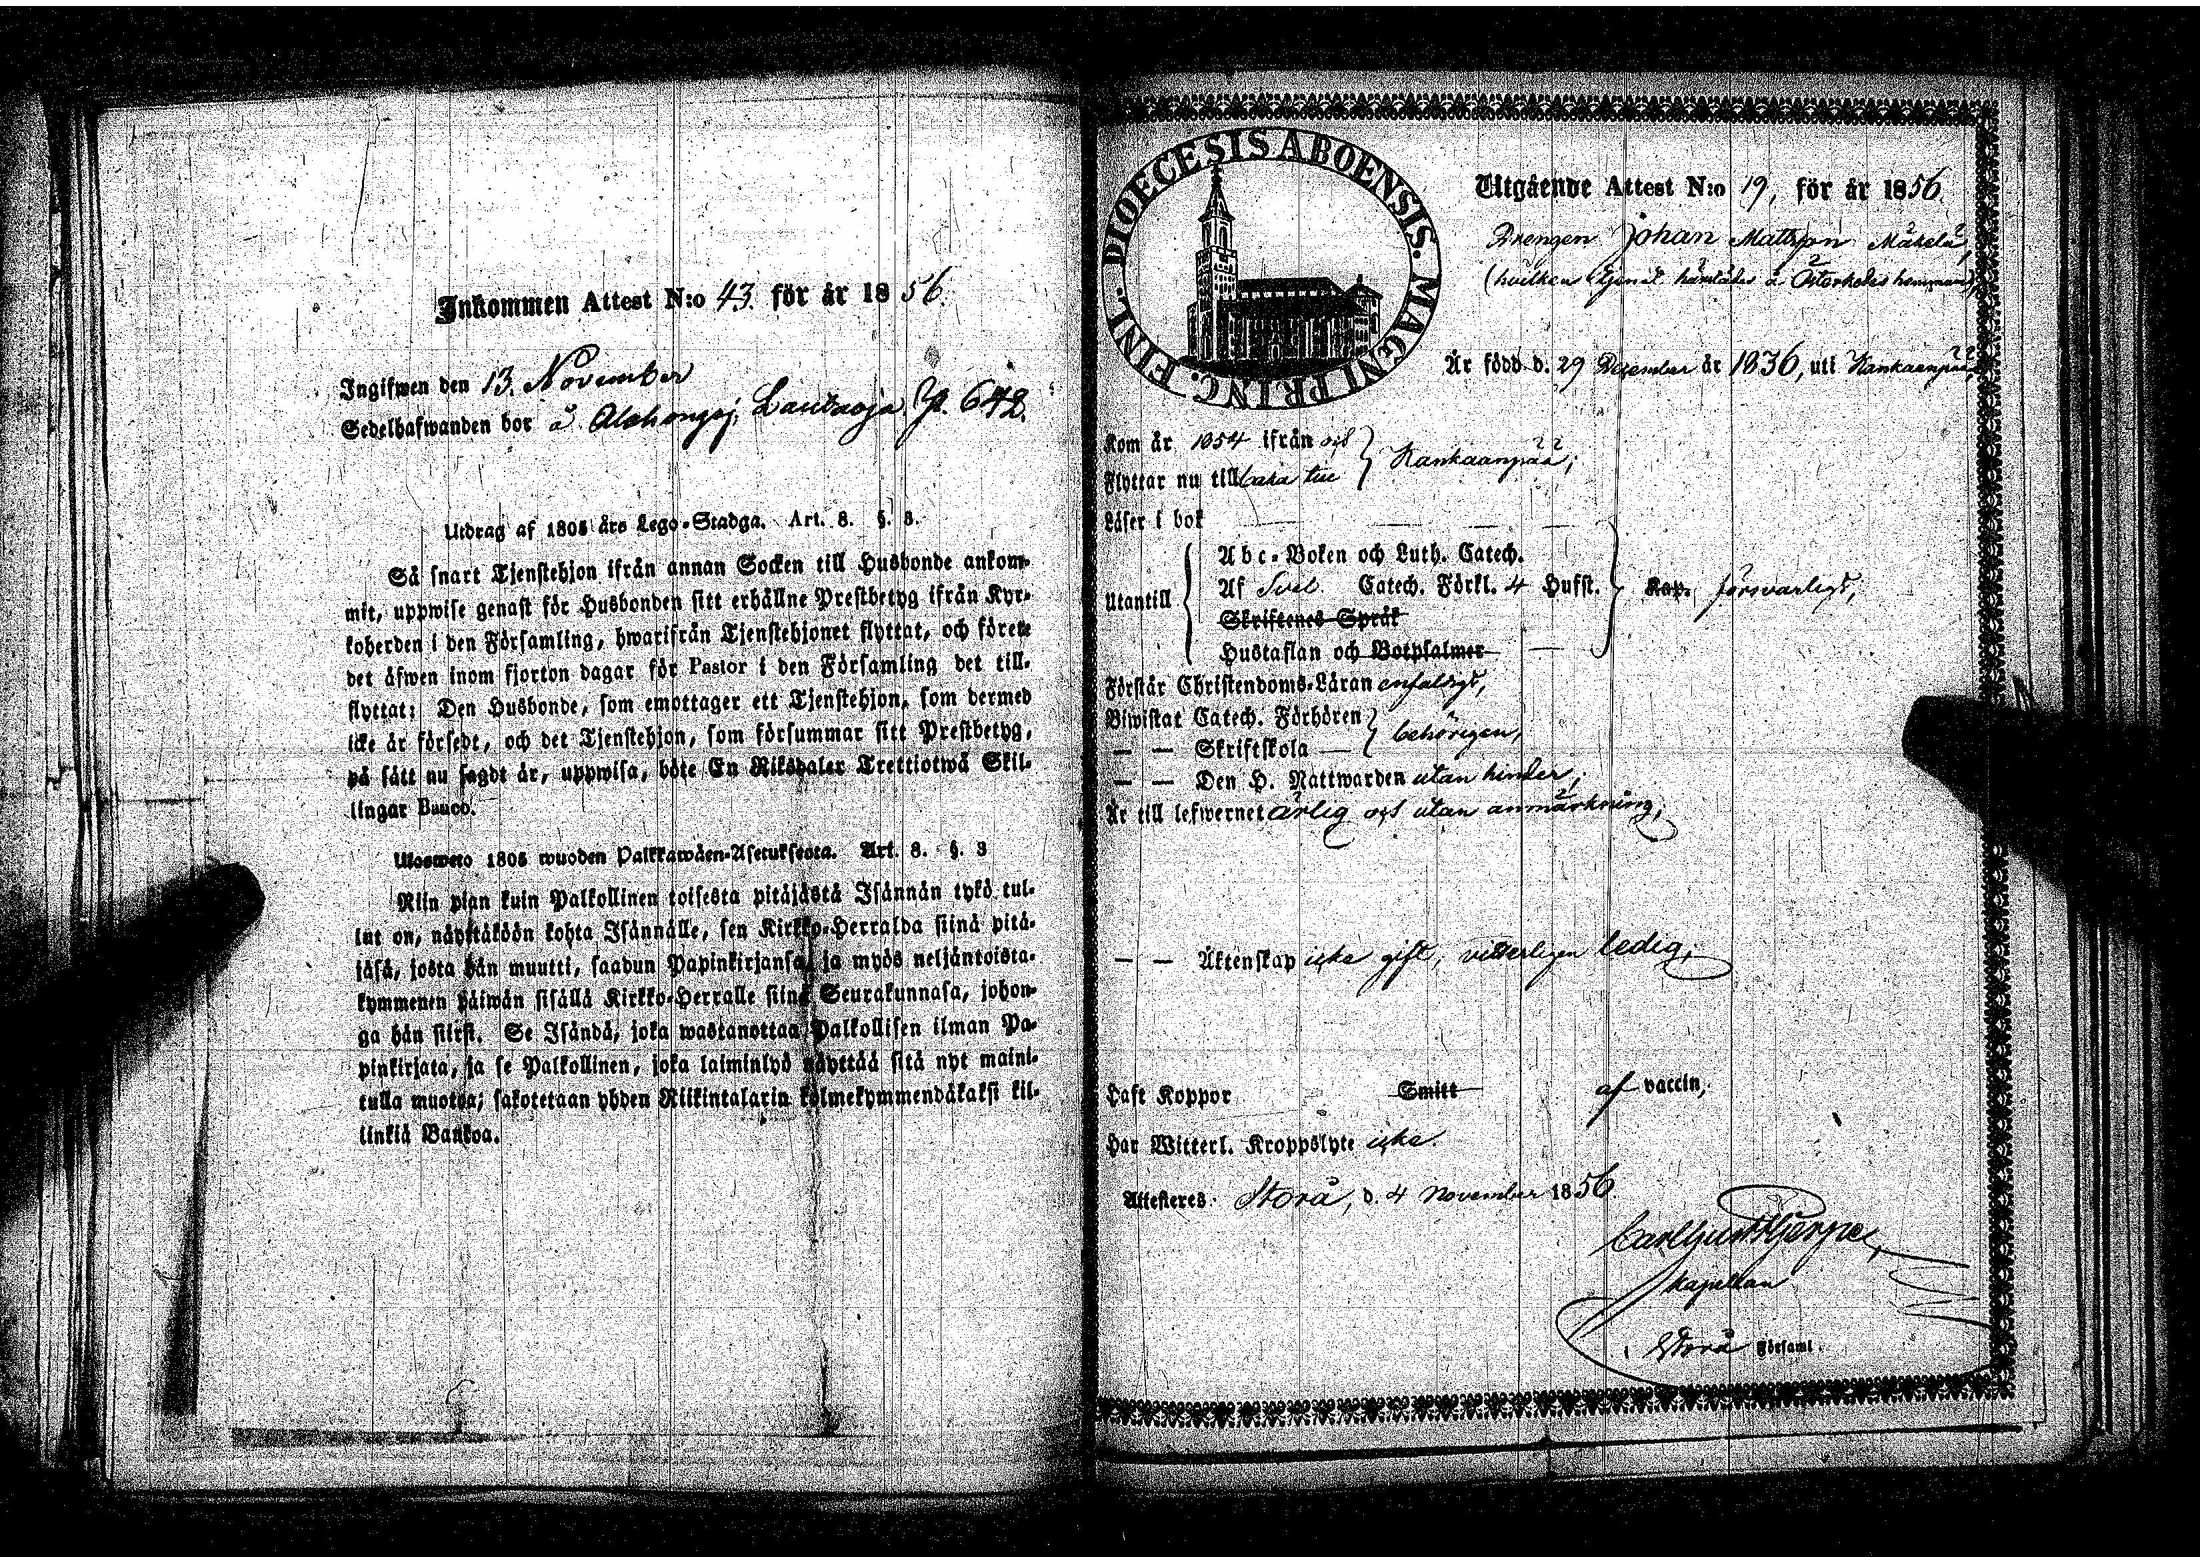 Inkommen Attest N:o 43. för år 1856.
Ingifwen den 13. November
Sedelhafwanden bor å Alahongoj. Lauraoja. P. 642.
Utdrag af 1805 års Lego-Stadga. Art. 8. §. 3.
Så snart Tjenstehjon ifrån annan Socken till Husbonde ankom-
mit, uppwise genast för Husbonden sitt erhållne Prestbetyg ifrån Kyr-
koherden i den Församling, hwarifrån Tjenstehjonet flyttat, och förete
det äfwen inom fjorton dagar för Pastor i den Församling det till-
flyttat: Den Husbonde, som emottager ett Tjenstehjon, som dermed
icke är försedt, och det Tjenstehjon, som försummar sitt Prestbetyg,
på sätt nu sagdt är, uppwisa, böte En Riksdaler Trettiotwå Skil-
lingar Banco.
Ulosweto 1805 wuoden Palkkawäen-Asetuksesta. Art. 8. §. 3
Niin pian kuin Palkollinen toisesta pitäjästä Isännän tykö tul-
lut on, näyttäköön kohta Isännälle, sen Kirkko-Herralda siinä pitä-
jäsä, josta hän muutti, saadun Papinkirjansa, ja myös neljäntoista-
kymmenen päiwän sisällä Kirkko-Herralle siinä Seurakunnasa, johon-
ga hän siirsi. Se Isändä, joka wastanottaa Palkollisen ilman Pa-
pinkirjata, ja se Palkollinen, joka laiminlyö näyttää sitä nyt maini-
tulla muotoa; sakotetaan yhden Riikintalarin kolmekymmendäkaksi kil-
linkiä Bankoa.
DIOECESIS ABOENSIS. MAGNI PRINC. FINL.
Utgående Attest N:o 19, för år 1856.
Drengen Johan Mattsson Mäkelä,
(hvilken tjenst hemman),
Är född d. 29 December år 1836, uti Kankaanpää,
Kom år 1854 ifrån och
Flyttar nu tillbaka till } Kankaanpää;
Läser i bok
Abc-Boken och Luth. Catech.
Utantill { Af Svel. Catech. Förkl. 4 Hufst. } Kap. försvarligt,
Skriftenes Språk
Hustaflan och Botpsalmer
Förstår Christendoms-Läran enfaldigt,
Biwistat Catech. Förhören
— — Skriftskola — } behörigen,
— — Den H. Nattwarden utan hinder;
Är till lefwernet ärlig och utan anmärkning;
— — Äktenskap icke gift, vitterligen ledig;
Haft Koppor Smitt af vaccin,
Har Witterl. Kroppslyte icke.
Attesteras Storå, d. 4 November 1856.
Carl Gust. Hjerpe,
kapellan
i Storå Församl.